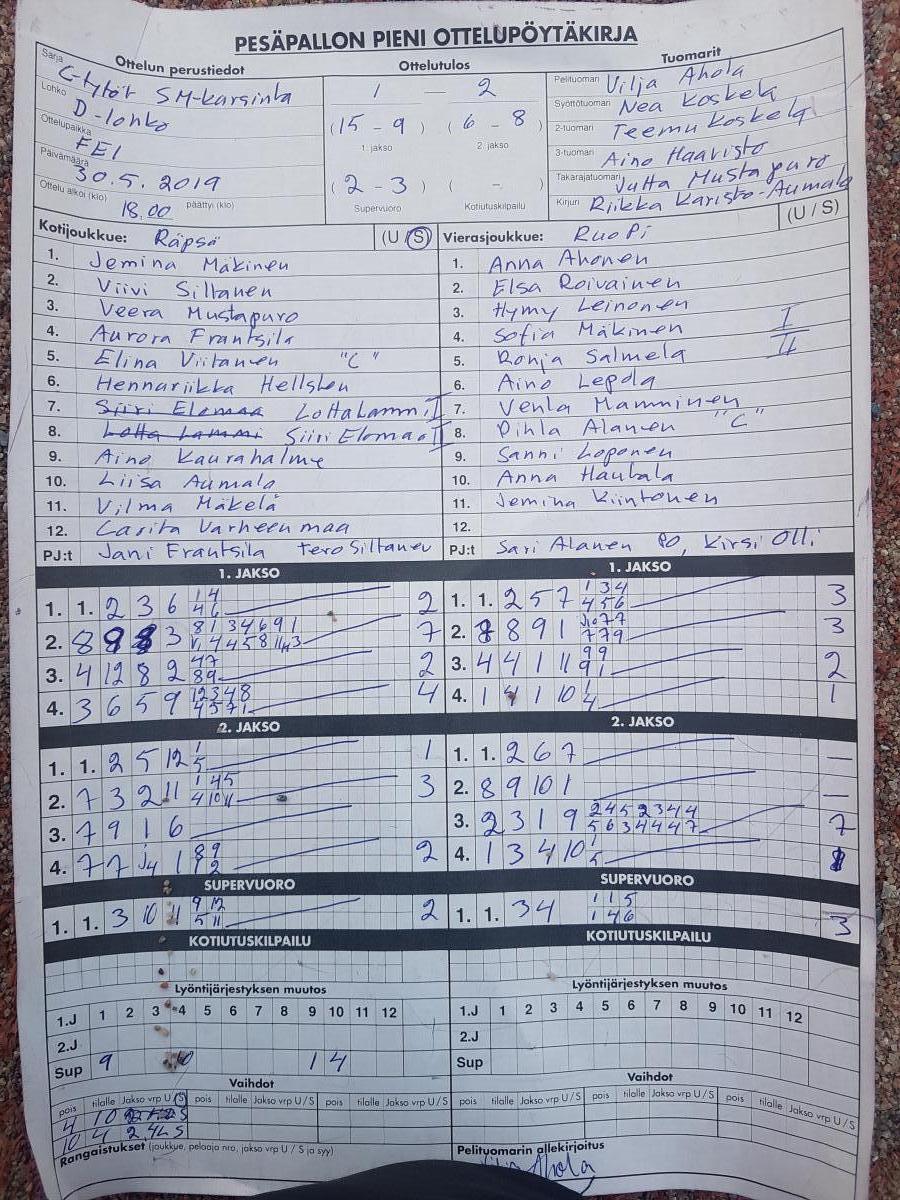 PESÄPALLON PIENI OTTELUPÖYTÄKIRJA
Ottelun perustiedot
Sarja C-tytöt SM-karsinta
Lohko D-lohko
Ottelupaikka FEI
Päivämäärä 30.5.2019
Ottelu alkoi (klo) 18.00 päättyi (klo)
Ottelutulos
1 — 2
(15 - 9) (6 - 8)
1. jakso 2. jakso
(2 - 3) ( - )
Supervuoro Kotiutuskilpailu
Tuomarit
Pelituomari Vilja Ahola
Syöttötuomari Nea Koskela
2-tuomari Teemu Koskela
3-tuomari Aino Haavisto
Takarajatuomari Jutta Mustapuro
Kirjuri Riikka Karisto-Aumala
Kotijoukkue: Räpsä (U / S)
1. Jemina Mäkinen
2. Viivi Siltanen
3. Veera Mustapuro
4. Aurora Frantsila
5. Elina Viitanen "C"
6. Hennariikka Hellsten
7. Siiri Elomaa Lotta Lammi I
8. Lotta Lammi Siiri Elomaa II
9. Aino Kaurahalme
10. Liisa Aumala
11. Vilma Mäkelä
12. Carita Varheenmaa
PJ:t Jani Frantsila Tero Siltanen
Vierasjoukkue: RuoPi (U / S)
1. Anna Ahonen
2. Elsa Roivainen
3. Hymy Leinonen
4. Sofia Mäkinen I
5. Ronja Salmela II
6. Aino Lepola
7. Venla Mamminen
8. Pihla Alanen "C"
9. Sanni Loponen
10. Anna Hautala
11. Jemina Kiintonen
12.
PJ:t Sari Alanen PO, Kirsi Olli
1. JAKSO
1. 1. 2 3 6 14 46 2
2. 8 9 8 3 8 1 3 4 6 9 1 7
3. 4 12 8 2 47 89 2
4. 3 6 5 9 12 3 4 8 4 5 7 1 4
2. JAKSO
1. 1. 2 5 12 1 5 1
2. 7 3 2 11 1 4 5 4 10 11 3
3. 7 9 1 6
4. 7 7 J4 1 89 12 2
SUPERVUORO
1. 1. 3 10 11 9 12 5 11 2
KOTIUTUSKILPAILU
Lyöntijärjestyksen muutos
1.J 1 2 3 4 5 6 7 8 9 10 11 12
2.J
Sup 9 10 1 4
Vaihdot
pois tilalle Jakso vrp U / S pois tilalle Jakso vrp U / S pois tilalle Jakso vrp U / S
4 10 S
10 4 2. 4L S
Rangaistukset (joukkue, pelaaja nro, jakso vrp U / S ja syy)
1. JAKSO
1. 1. 2 5 7 1 3 4 4 5 6 3
2. 8 8 9 1 J10 7 7 7 7 9 3
3. 4 4 1 11 99 91 2
4. 1 4 1 10 1 4 1
2. JAKSO
1. 1. 2 6 7 —
2. 8 9 10 1 —
3. 2 3 1 9 2 4 5 2 3 4 4 5 6 3 4 4 4 7 7
4. 1 3 4 10 1 5 1
SUPERVUORO
1. 1. 3 4 1 1 5 1 4 6 3
KOTIUTUSKILPAILU
Lyöntijärjestyksen muutos
1.J 1 2 3 4 5 6 7 8 9 10 11 12
2.J
Sup
Vaihdot
pois tilalle Jakso vrp U / S pois tilalle Jakso vrp U / S pois tilalle Jakso vrp U / S
Pelituomarin allekirjoitus
Vilja Ahola